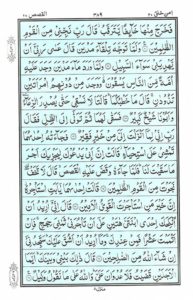 القصص ٢٨ ٣٨٩ امن خلق ٢٠
فَخَرَجَ مِنْهَا خَآئِفًا يَّتَرَقَّبُ قَالَ رَبِّ نَجِّنِيْ مِنَ الْقَوْمِ
الظّٰلِمِيْنَ وَلَمَّا تَوَجَّهَ تِلْقَآءَ مَدْيَنَ قَالَ عَسٰى رَبِّيْٓ اَنْ
يَّهْدِيَنِيْ سَوَآءَ السَّبِيْلِ وَلَمَّا وَرَدَ مَآءَ مَدْيَنَ وَجَدَ عَلَيْهِ
اُمَّةً مِّنَ النَّاسِ يَسْقُوْنَ وَوَجَدَ مِنْ دُوْنِهِمُ امْرَاَتَيْنِ
تَذُوْدٰنِ قَالَ مَا خَطْبُكُمَا قَالَتَا لَا نَسْقِيْ حَتّٰى يُصْدِرَ الرِّعَآءُ
وَاَبُوْنَا شَيْخٌ كَبِيْرٌ فَسَقٰى لَهُمَا ثُمَّ تَوَلّٰٓى اِلَى الظِّلِّ فَقَالَ
رَبِّ اِنِّيْ لِمَآ اَنْزَلْتَ اِلَيَّ مِنْ خَيْرٍ فَقِيْرٌ فَجَآءَتْهُ اِحْدٰىهُمَا
تَمْشِيْ عَلَى اسْتِحْيَآءٍ قَالَتْ اِنَّ اَبِيْ يَدْعُوْكَ لِيَجْزِيَكَ اَجْرَ
مَا سَقَيْتَ لَنَا فَلَمَّا جَآءَهٗ وَقَصَّ عَلَيْهِ الْقَصَصَ قَالَ لَا تَخَفْ
نَجَوْتَ مِنَ الْقَوْمِ الظّٰلِمِيْنَ قَالَتْ اِحْدٰىهُمَا يٰٓاَبَتِ اسْتَاْجِرْهُ
اِنَّ خَيْرَ مَنِ اسْتَاْجَرْتَ الْقَوِيُّ الْاَمِيْنُ قَالَ اِنِّيْٓ اُرِيْدُ اَنْ
اُنْكِحَكَ اِحْدَى ابْنَتَيَّ هٰتَيْنِ عَلٰٓى اَنْ تَاْجُرَنِيْ ثَمٰنِيَ حِجَجٍ فَاِنْ
اَتْمَمْتَ عَشْرًا فَمِنْ عِنْدِكَ وَمَآ اُرِيْدُ اَنْ اَشُقَّ عَلَيْكَ سَتَجِدُنِيْٓ
اِنْ شَآءَ اللّٰهُ مِنَ الصّٰلِحِيْنَ قَالَ ذٰلِكَ بَيْنِيْ وَبَيْنَكَ اَيَّمَا
الْاَجَلَيْنِ قَضَيْتُ فَلَا عُدْوَانَ عَلَيَّ وَاللّٰهُ عَلٰى مَا نَقُوْلُ وَكِيْلٌ
منزل ٥